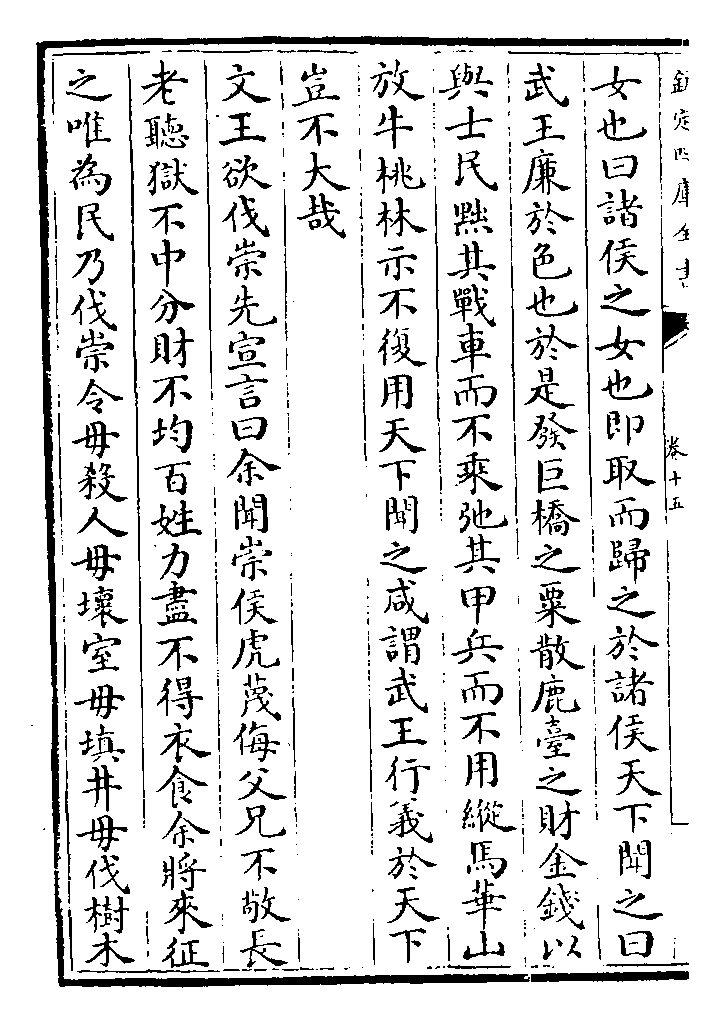 欽定四庫全書
卷十五
女也曰諸侯之女也即取而歸之於諸侯天下聞之曰
武王廉於色也於是發巨橋之粟散鹿臺之財金錢以
與士民黜其戰車而不乘弛其甲兵而不用縱馬華山
放牛桃林示不復用天下聞之咸謂武王行義於天下
豈不大哉
文王欲伐崇先宣言曰余聞崇侯虎蔑侮父兄不敬長
老聽獄不中分財不均百姓力盡不得衣食余將來征
之唯為民乃伐崇令毋殺人毋壞室毋填井毋伐樹木